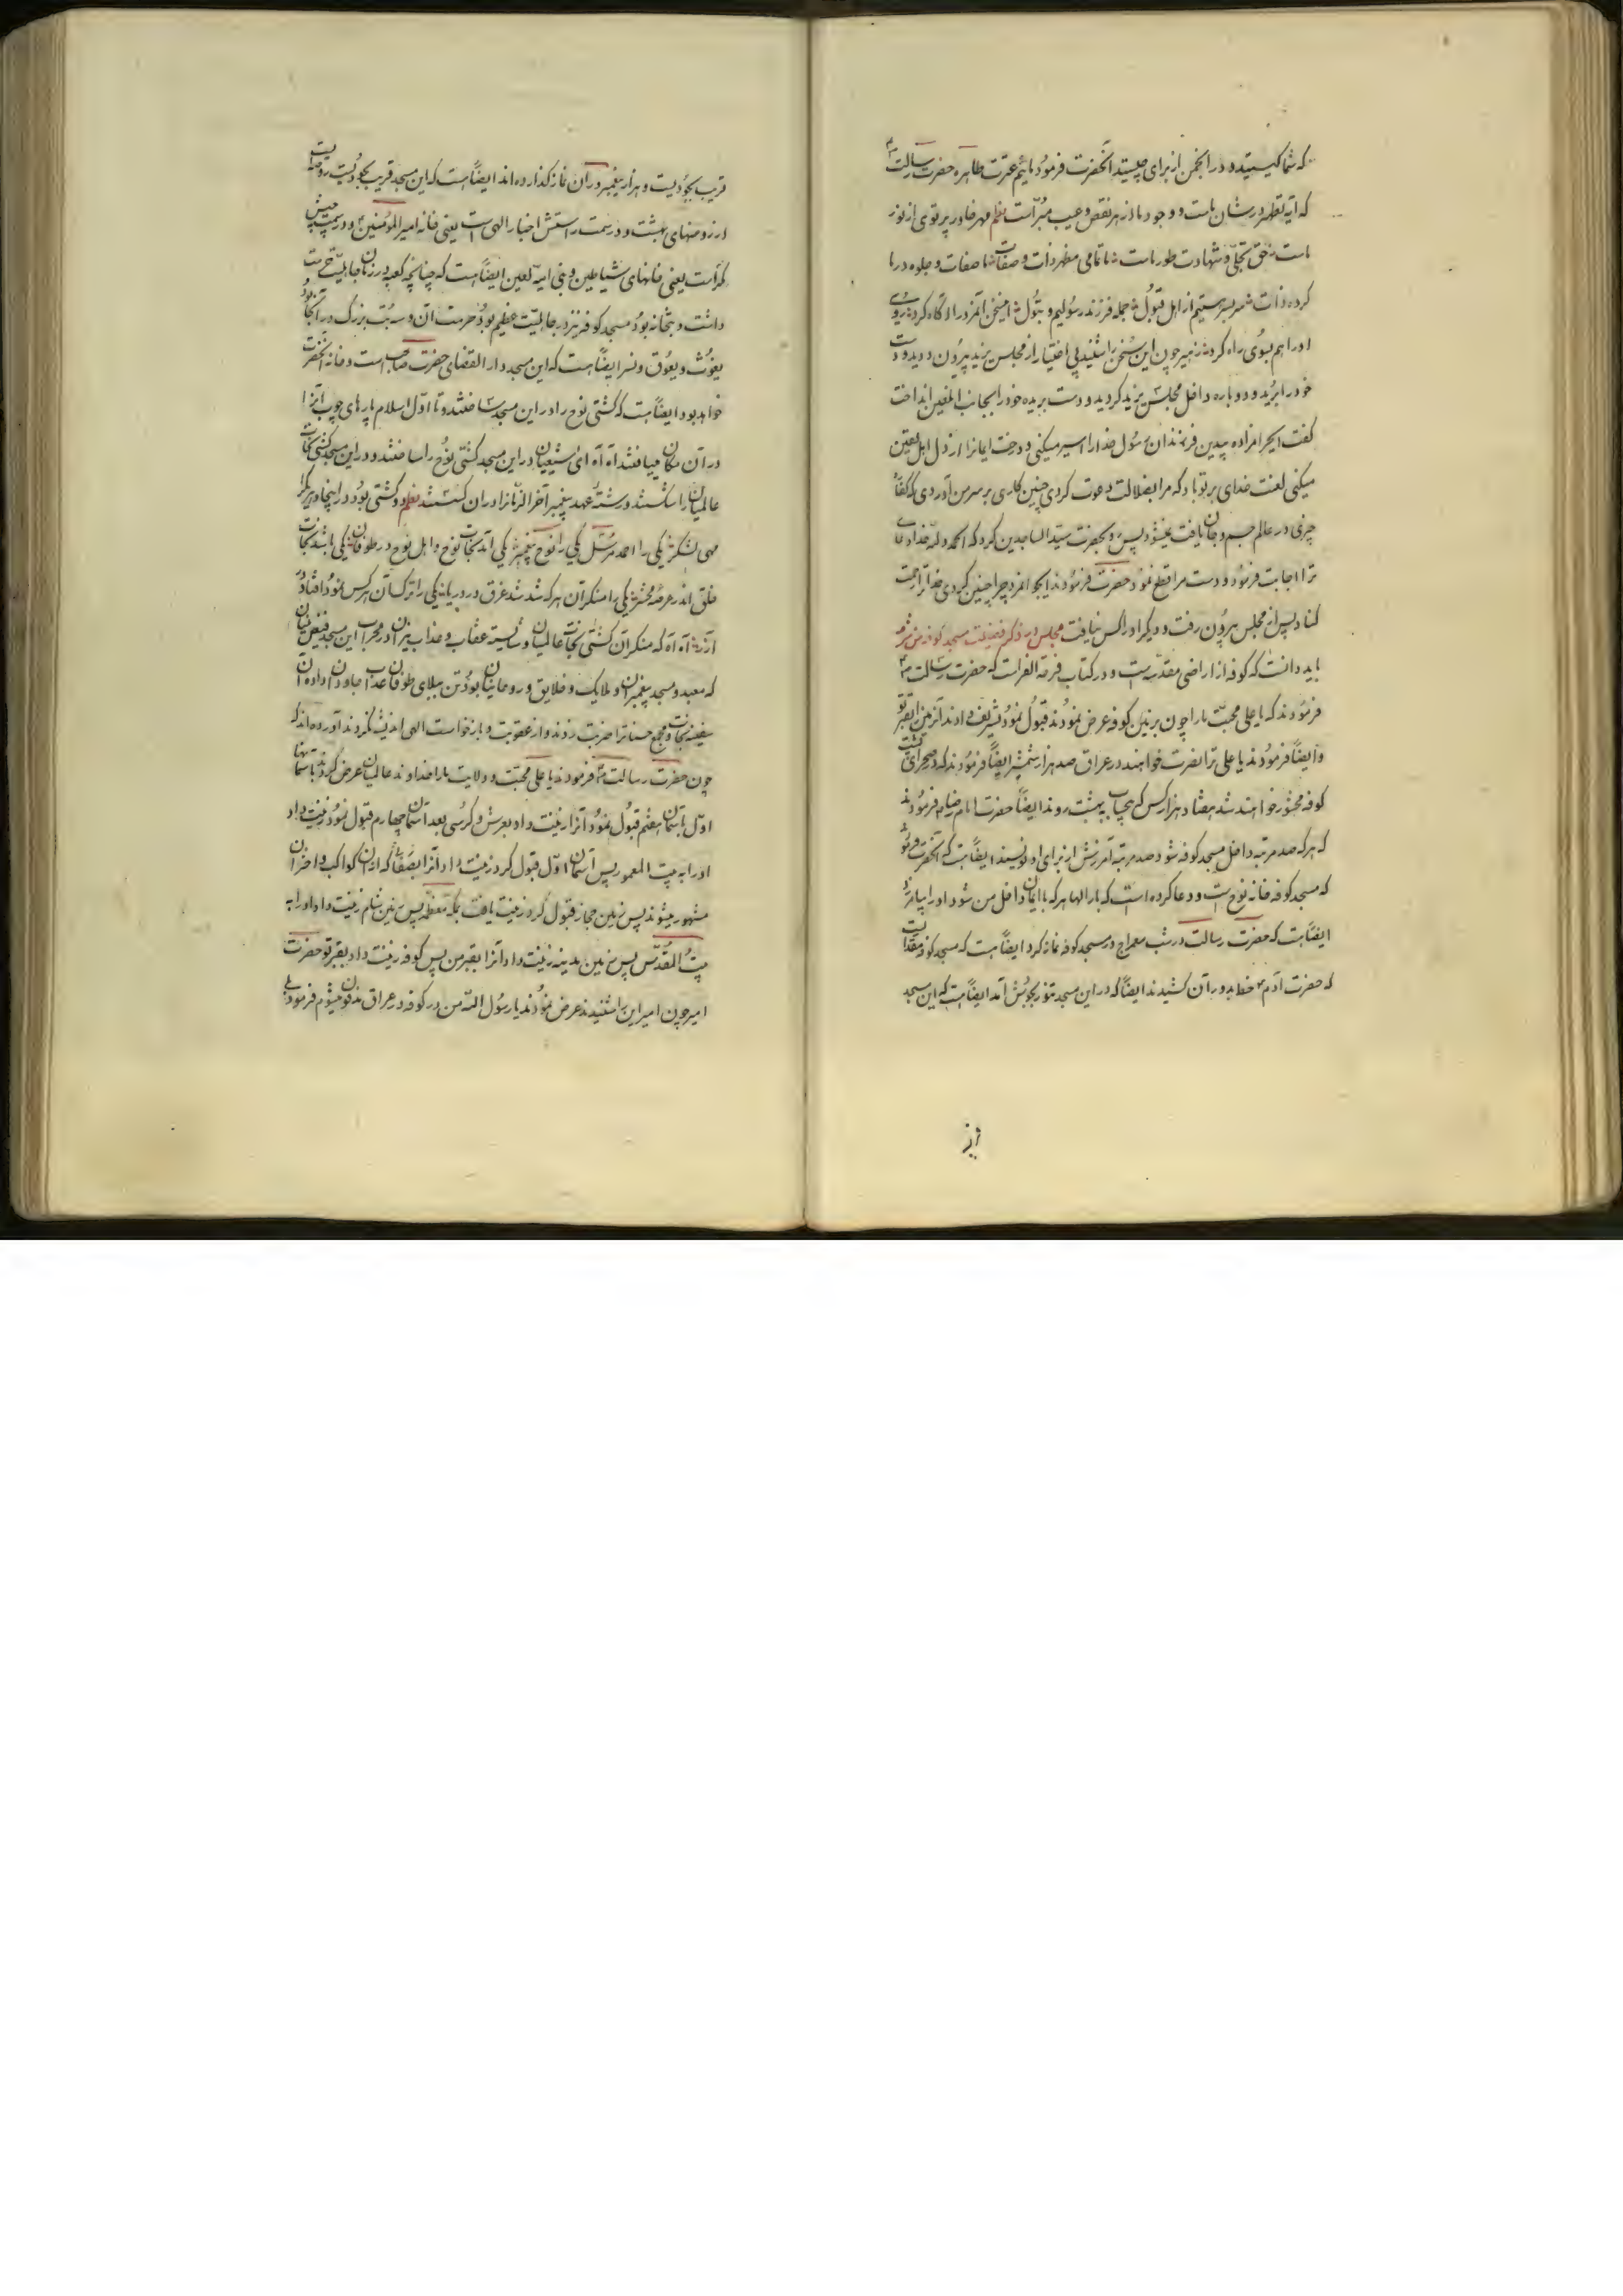 که شما کیستید و در انجمن از برای چیستید آنحضرت فرمود مائیم عترت طاهره حضرت رسالت
که آیه تطهیر در شان ماست و وجود ما از هر نقص و عیب مبراست نظم مهر خاور پرتوی از نور
ماست حق تجلی شهادت طور ماست ما تمامی مظهر ذات و صفات صفات و جلوه در ما
کرده ذات سر بسر هستیم از اهل قبول جمله فرزند رسولیم و بتول این سخن آنمرد را آگاه کرد روی
او را هم بسوی راه کرد زهیر چون این سخن را شنید بی اختیار از مجلس یزید بیرون دوید و دست
خود را برید و دوباره داخل مجلس یزید گردید و دست بریده خود را بجانب آنلعین انداخت
گفت ایحرامزاده بیدین فرزندان رسول خدا را اسیر میکنی و درخت ایمانرا از دل اهل یقین
میکنی لعنت خدای بر تو باد که مرا بضلالت دعوت کردی چنین کاری بر سر من آوردی که
چیزی در عالم جسم و جان یافت نمیشود پس رو بحضرت سید الساجدین کرد که الحمد لله خدا دعای
ترا اجابت فرمود و دست مرا قطع نمود حضرت فرمودند ایجوانمرد چرا چنین کردی خدا ترا رحمت
کناد پس از مجلس بیرون رفت و دیگر او را کس نیافت مجلس در ذکر فضیلت مسجد کوفه
باید دانست که کوفه از اراضی مقدسه است و در کتاب فرحة الغرات که حضرت رسالت
فرمودند که یا علی محبت ما را چون بر زمین کوفه عرض نمودند قبول نمود تشریف دادند آنزمین را بقبر تو
و ایضاً فرمودند یا علی ترا نصرت خواهند در عراق صد هزار شمشیر ایضاً فرمودند که در صحرای پشت
کوفه محشور خواهند شد هفتاد هزار کس که بیحساب ببهشت روند ایضاً حضرت امام رضا فرمودند
که هر که صد مرتبه داخل مسجد کوفه شود صد مرتبه آمرزش از برای او نویسند ایضاً است که آنحضرت فرمود
که مسجد کوفه خانه نوح است و دعا کرده است که بار الها هر که با ایمان داخل من شود او را بیامرز
ایضاً است که حضرت رسالت در شب معراج در مسجد کوفه نماز کرد ایضاً است که مسجد کوفه مقدا
که حضرت آدم خط بدور آن کشیدند ایضاً که در این مسجد تنور بجوش آمد ایضاً است که این مسجد
قریب بجودیست و هزار پیغمبر در آن نماز گذارده‌اند ایضاً است که این مسجد قریب بجودیست
از روضهای بهشت و در سمت راستش اخبار الهی است یعنی خانه امیر المؤمنین و در سمت چپش
مکر است یعنی خانهای شیاطین و بنی امیه لعین ایضاً است که چنانچه کعبه در زمان جاهلیت حرمت
داشت و بتخانه بود مسجد کوفه نیز در جاهلیت عظیم بود حرمت آن و سه بت بزرگ در آنجا بود
یغوث و یعوق و نسر ایضاً است که این مسجد دار القضای حضرت صاحب است و خانه آنحضرت
خواهد بود ایضاً است که کشتی نوح را در این مسجد ساختند و تا اول اسلام پارهای چوب آنرا
در آن مکان مییافتند آه آه ای شیعیان در این مسجد کشتی نوح را ساختند و در این مسجد کشتی نجات
عالمیان را شکستند و رشته عهد پیغمبر آخر الزمانرا در آن گسستند نظم دو کشتی بود در اینجا
یکی را احمد مرسل یکی را نوح پیغمبر یکی آمد نجات نوح و اهل نوح در طوفان یکی باشد نجات
خلق اندر عرصه محشر یکی را منکران هر که شد شد غرق در دریا یکی را ترک آن هر کس نمود افتاد در
آزر آه آه که منکران کشتی نجات عالمیان و شایسته عقاب و عذاب نیران در محراب این مسجد فیض بنیان
که معبد و مسجد پیغمبران و ملایک و خلایق و روحانیان بود تن ببلای طوفان عذاب جاودان داده آن
سفینه نجات و مجمع حسناترا ضربت زدند و از عقوبت و بازخواست الهی اندیشه نکردند آورده‌اند که
چون حضرت رسالت فرمودند یا علی محبت و ولایت ما را خداوند عالمیان عرض کرد بآسمانها
اول بآسمان هفتم قبول نمود آنرا زینت داد بعرش و کرسی بعد آسمان چهارم قبول نمود زینت داد
او را به بیت المعمور پس آسمان اول قبول کرد زینت داد آنرا که از آن کواکب و اختران
مشهور میشوند پس زمین حجاز قبول کرد زینت یافت بمکه معظمه پس زمین شام زینت داد او را به
بیت المقدس پس زمین مدینه زینت داد آنرا بقبر من پس کوفه زینت داد بقبر تو حضرت
امیر چون امیر این را شنیدند عرض نمودند یا رسول الله من در کوفه در عراق مدفون میشوم فرمود بلی